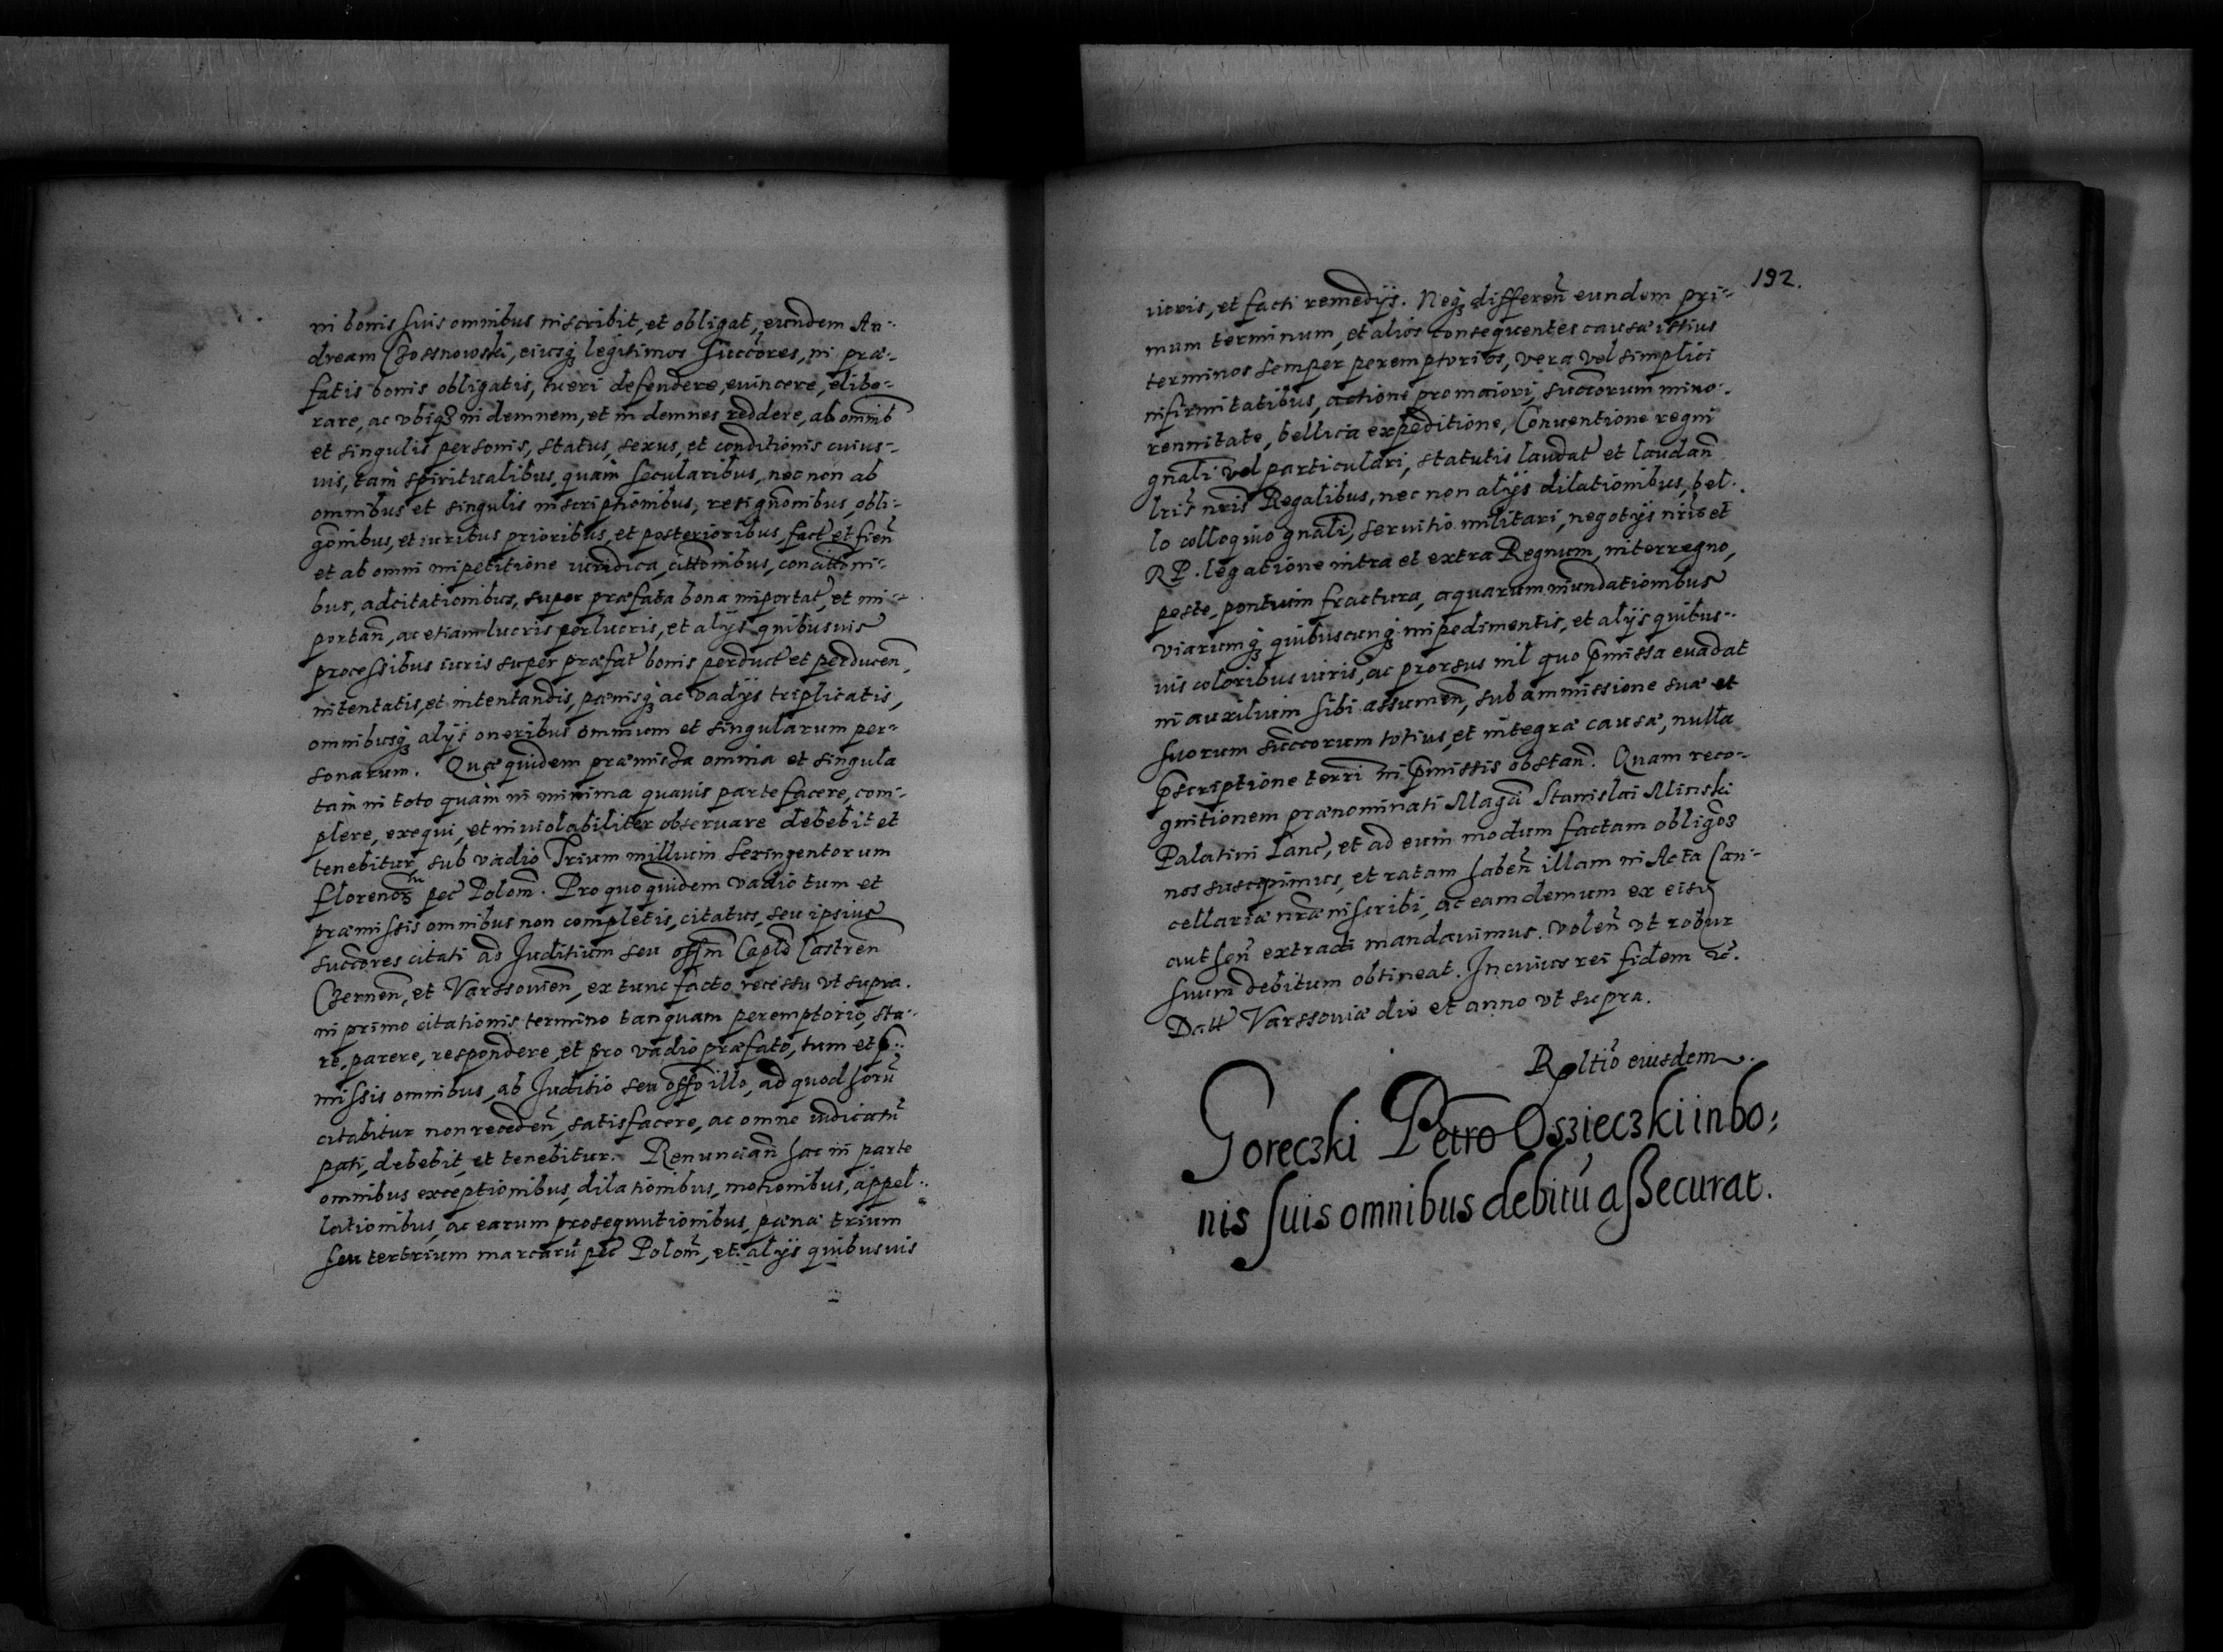 in bonis suis omnibus inscribit, et obligat, eundem An-
dream Czossnowski, eiusq legitimos succores, in præ-
fatis bonis obligatis, tueri defendere, euincere, elibe-
rare, ac vbiq indemnem, et indemnes reddere, ab omnib
et singulis personis, status, sexus, et conditionis cuius-
vis, tam spiritualibus, quam secularibus, nec non ab
omnibus et singulis inscriptionibus, resignonibus, obli-
gonibus, et iuribus prioribus, et posterioribus, fact et fien
et ab omni impetitione iuridica, cittonibus, concittoni-
bus, adcitationibus, super præfata bona importat, et im-
portan, ac etiam lucris perlucris, et alijs quibusuis
processibus iuris super præfat bonis perduct et perducen,
intentatis, et intentandis, pænisq ac vadijs triplicatis,
omnibusq alijs oneribus omnium et singularum per-
sonarum. Quæ quidem præmissa omnia et singula
tam in toto quam in minima quauis parte facere, com-
plere, exequi, et inuiolabiliter obseruare debebit et
tenebitur, sub vadio Trium millium sexingentorum
florenor pec Polon. Pro quo quidem vadio tum et
præmissis omnibus non completis, citatus, seu ipsius
succores citati ad Juditium seu offm Caple Castren
Czernen, et Varssouien, ex tunc facto recessu vt supra.
in primo citationis termino tanquam peremptorio, sta-
re, parere, respondere et pro vadio præfato, tum et p-
missis omnibus, ab Juditio seu offo illo, ad quod horu
citabitur non receden, satisfacere, ac omne iudicatu
pati, debebit, et tenebitur. Renuncian hac in parte
omnibus exceptionibus, dilationibus, motionibus, appel-
lationibus, ac earum prosequutionibus, pæna trium
seu ter trium marcaru pec Polon, et alijs quibusuis
192.
iuris, et facti remedijs. Neq differen eundem pri-
mum terminum, et alios consequentes causæ istius
terminos semper peremptorios, vera vel simplici
infirmitatibus, actione pro maiori, succorum mino-
rennitate, bellica expeditione, Conuentione regni
gnali vel particulari, statutis laudat et laudan
lris nris Regalibus, nec non alijs dilationibus, bel-
lo colloquio gnali, seruitio militari, negotijs nris et
RP. legatione intra et extra Regnum, interregno,
peste, pontium fractura, aquarum inundationibus
viarumq quibuscunq impedimentis, et alijs quibus-
uis coloribus iuris, ac prorsus nil quo pmissa euadat
in auxilium sibi assumen, sub ammissione suæ et
suorum succcorum totius, et integræ causæ, nulla
pscriptione terri in pmissis obstan. Quam reco-
gnitionem prænominati Magci Stanislai Minski
Palatini Lanc, et ad eum modum factam obligoz
nos suscepimus, et ratam haben illam in Acta Can-
cellariæ nræ inscribi, ac eam demum ex eisd
authen extradi mandauimus. volen vt robur
suum debitum obtineat. In cuius rei fidem &c.
Datt Varssouiæ die et anno vt supra.
Rltio eiusdem.
Goreczki Petro Oszieczki in bo-
nis suis omnibus debitu aßecurat.